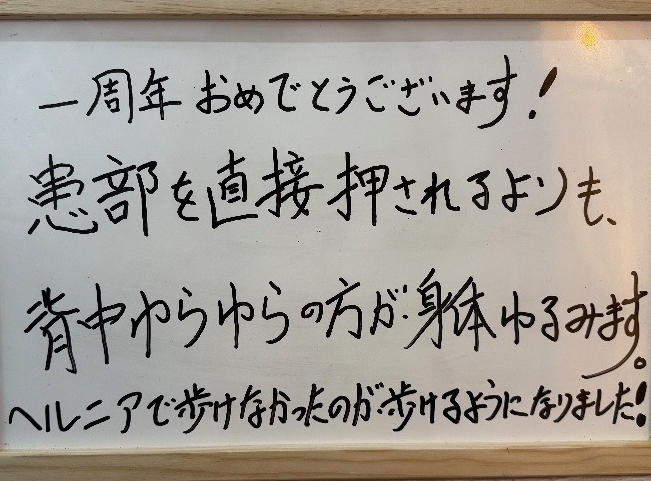 一周年おめでとうございます！
患部を直接押されるよりも、
背中ゆらゆらの方が身体ゆるみます。
ヘルニアで歩けなかったのが歩けるようになりました！